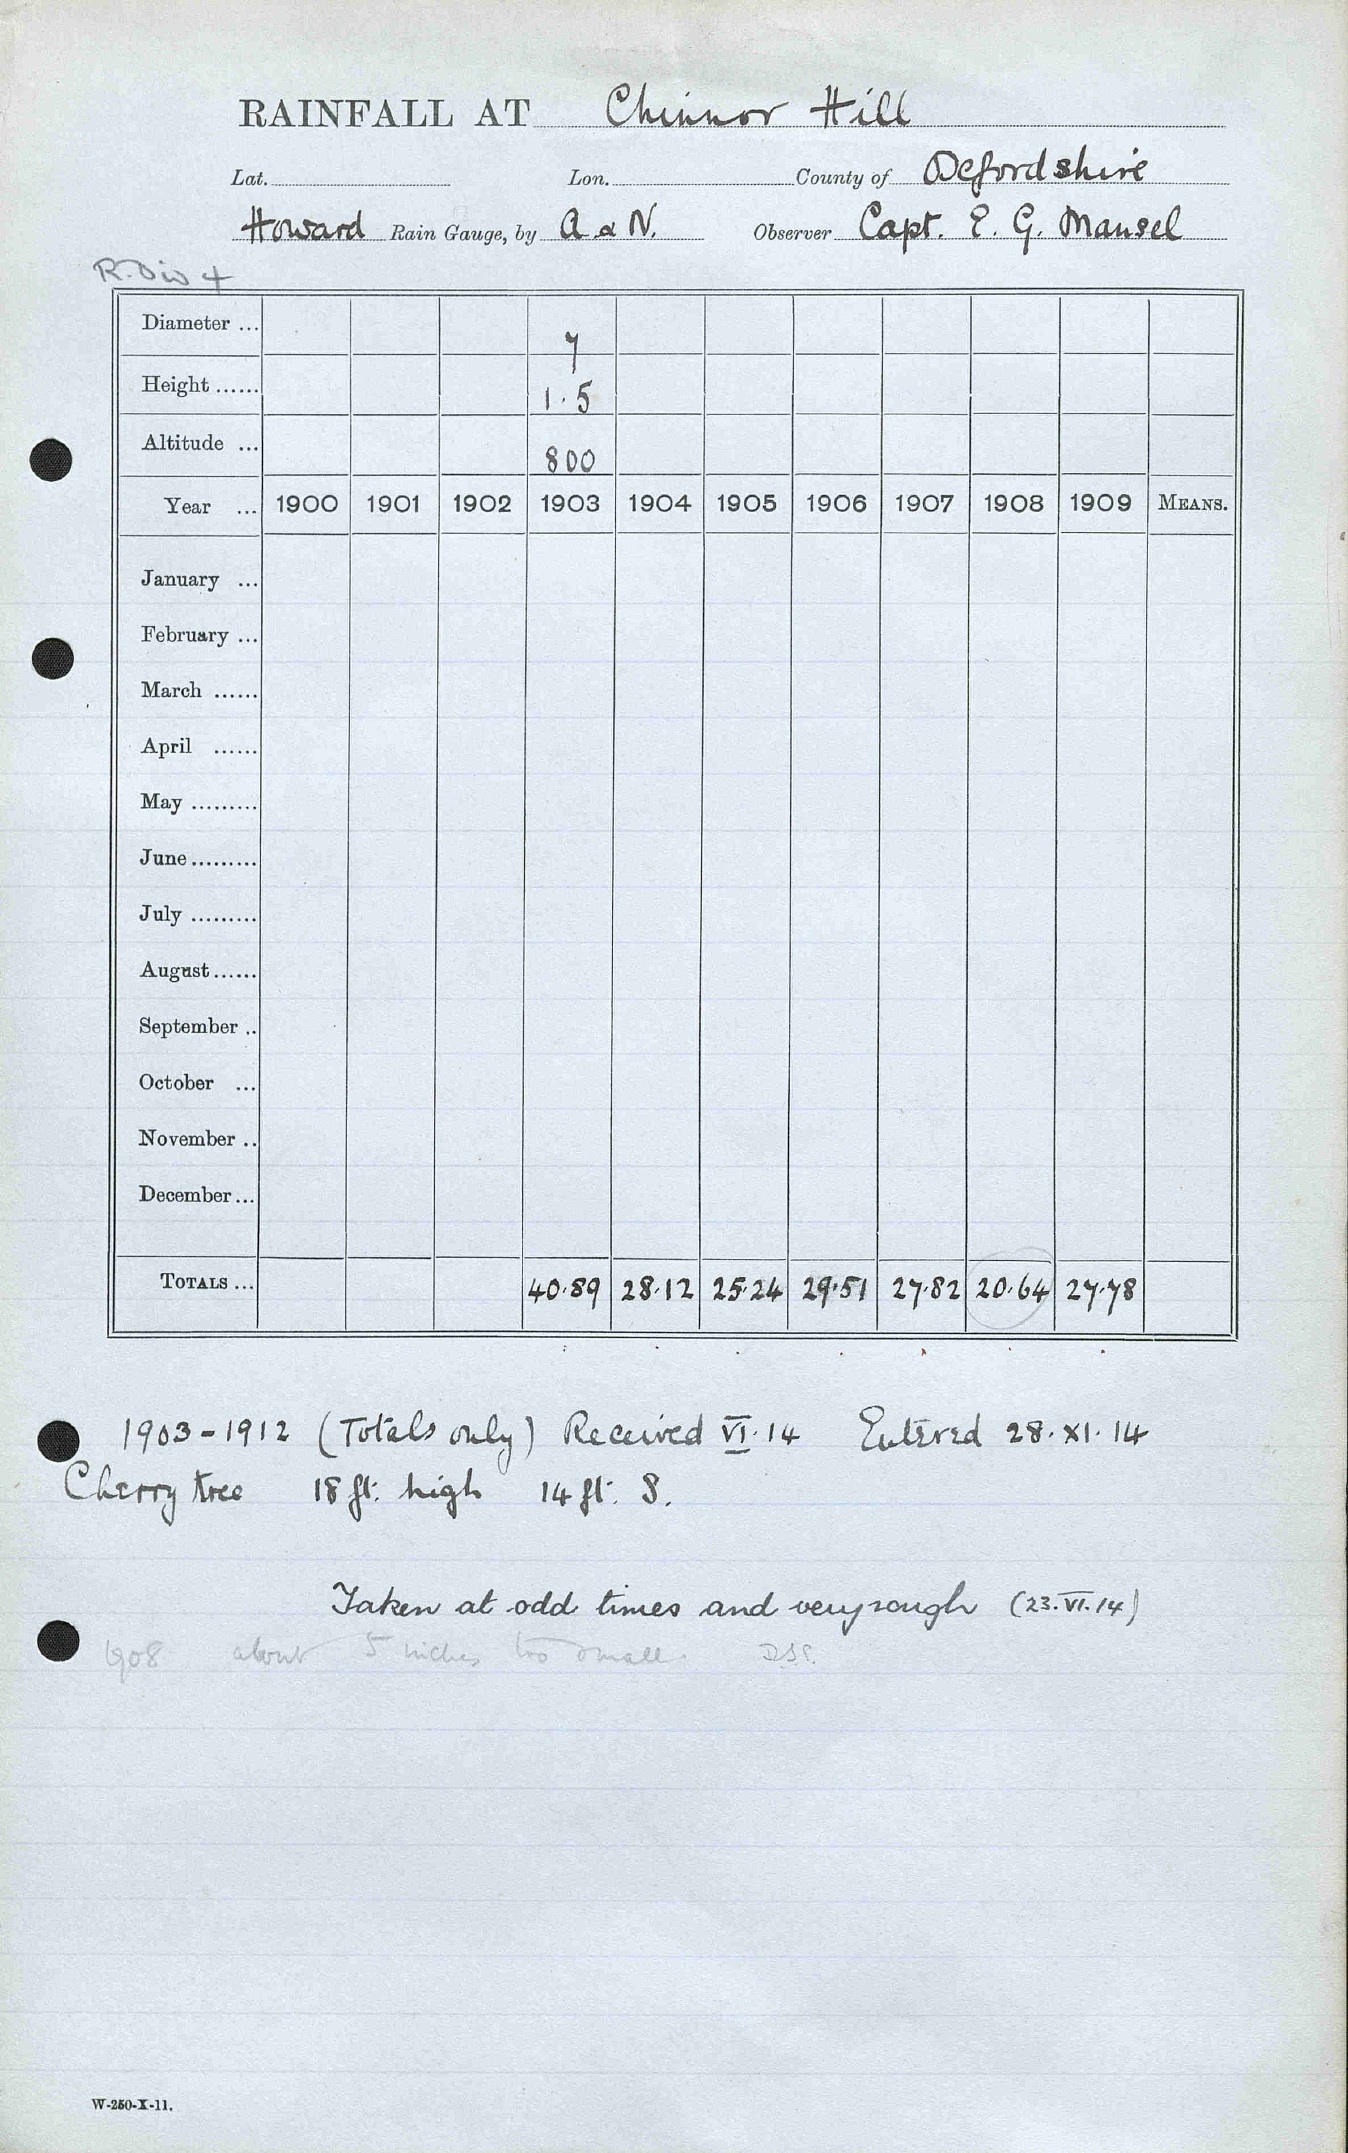 RAINFALL AT Chinnor Hill
Lat. Lon. County of Oxfordshire
Howard Rain Gauge, by A & N. Observer Capt. E. G. Mansel
R. Div 4
Diameter ... 7
Height ...... 1.5
Altitude ... 800
Year ... 1900 1901 1902 1903 1904 1905 1906 1907 1908 1909 MEANS.
January ...
February ...
March ......
April ......
May .........
June .........
July .........
August ......
September ..
October ...
November ..
December ...
TOTALS ... 40.89 28.12 25.24 29.51 27.82 20.64 27.78
1903-1912 (Totals only) Received VI.14 Entered 28.XI.14
Cherry tree 18 ft. high 14 ft. S.
Taken at odd times and very rough (23.VI.14)
1908 about 5 inches too small.
W-250-X-11.